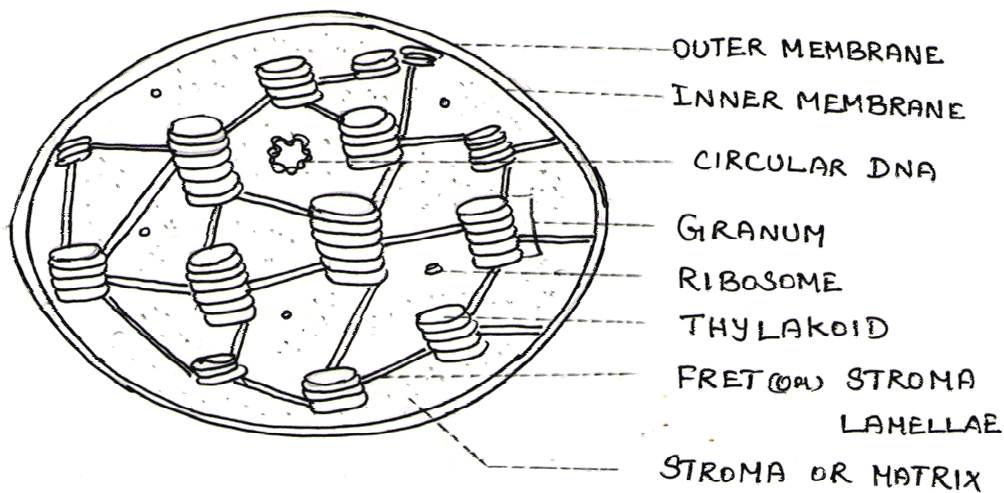 OUTER MEMBRANE
INNER MEMBRANE
CIRCULAR DNA
GRANUM
RIBOSOME
THYLAKOID
FRET (or) STROMA
LAMELLAE
STROMA OR MATRIX